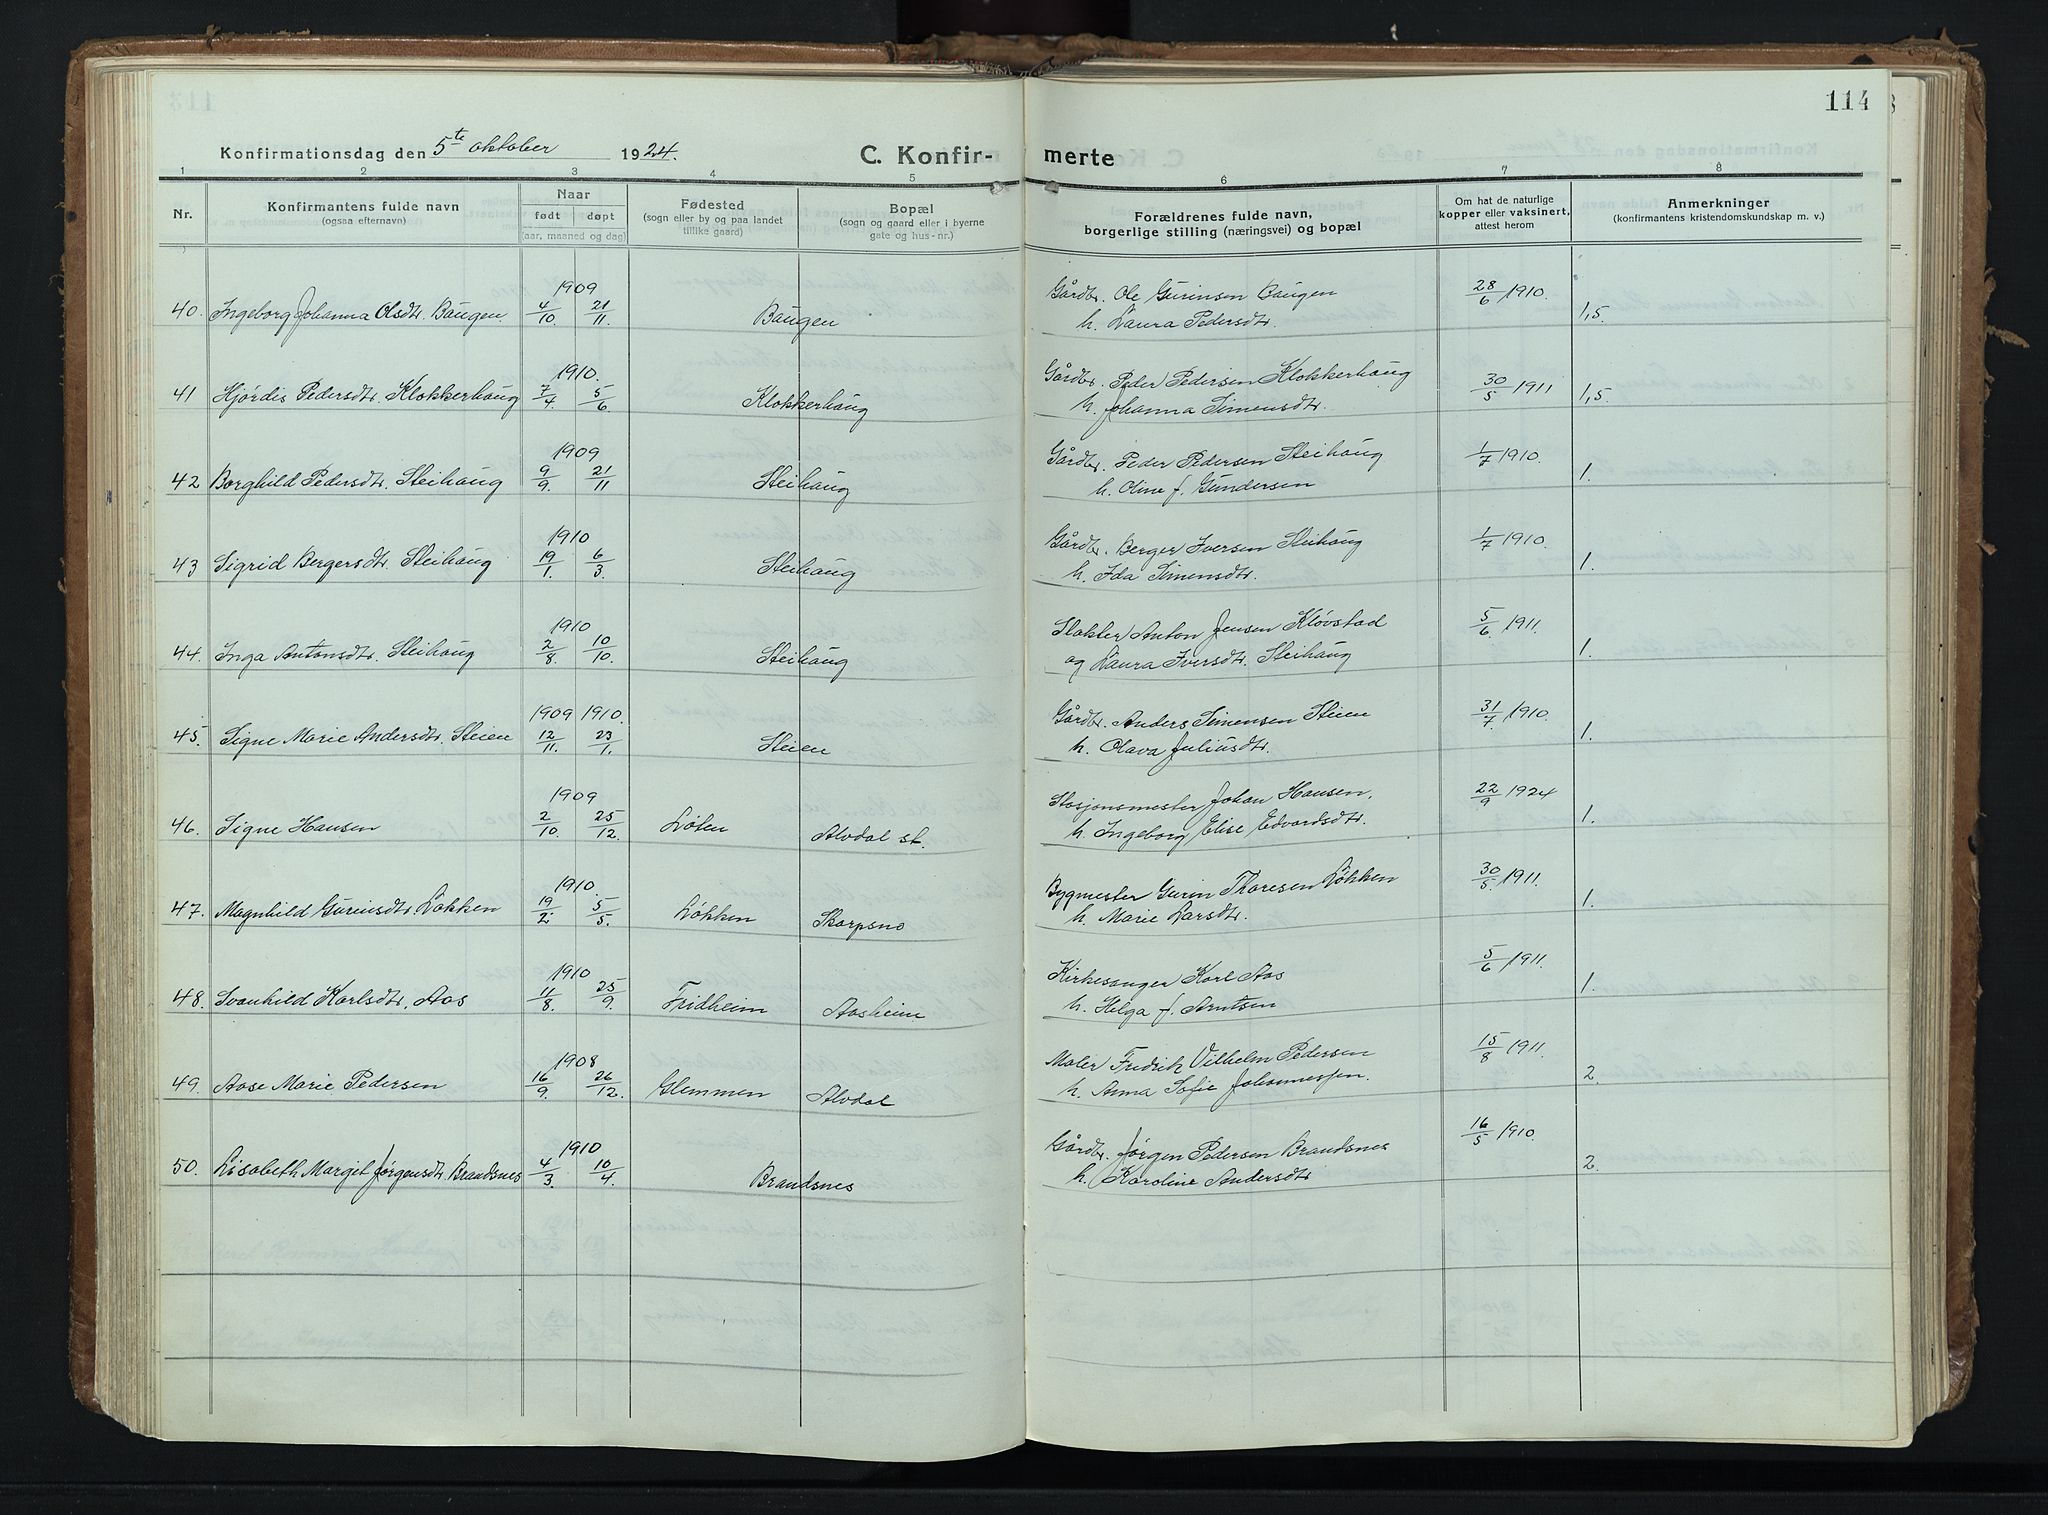 114
Konfirmationsdag den 5te oktober 1924.
C. Konfir-merte
1 2 3 4 5 6 7 8
Nr.
Konfirmantens fulde navn
(ogsaa efternavn)
Naar
født døpt
(aar, maaned og dag)
Fødested
(sogn eller by og paa landet
tillike gaard)
Bopæl
(sogn og gaard eller i byerne
gate og hus-nr.)
Forældrenes fulde navn,
borgerlige stilling (næringsvei) og bopæl
Om hat de naturlige
kopper eller vaksinert,
attest herom
Anmerkninger
(konfirmantens kristendomskundskap m. v.)
1909 Gårdbr. Ole Gurinsen Baugen 28/6 1910.
40. Ingeborg Johanna Olsdtr. Baugen. 4/10 21/11 Baugen h. Laura Pedersdtr. 1,5.
1910. Gårdbr. Peder Pedersen Klokkerhaug 30/5 1911
41 Hjørdis Pedersdtr. Klokkerhaug 7/4 5/6 Klokkerhaug h. Johanna Simensdtr. 1,5.
1909 Gårdbr. Peder Pedersen Steihaug 1/7 1910.
42 Borghild Pedersdtr. Steihaug 9/9 21/11 Steihaug h. Oline f. Gundersen 1.
1910 Gårdbr. Berger Iversen Steihaug 1/7 1910.
43 Sigrid Bergersdtr. Steihaug 19/1 6/3 Steihaug h. Ida Simensdtr. 1.
1910 Slakter Anton Jensen Kløvstad 5/6 1911.
44. Inga Antonsdtr. Steihaug 2/8 10/10 Steihaug og Laura Iversdtr. Steihaug 1.
1909 1910. Gårdbr. Anders Simensen Steien 31/7 1910.
45. Signe Marie Andersdtr. Steien 12/11. 23/1. Steien h. Olava Juliusdtr. 1.
1909 Stasjonsmester Johan Hansen, 22/9 1924
46. Signe Hansen 2/10. 25/12. Løten Alvdal st. h. Ingeborg Elise Edvardsdtr. 1.
1910. Bygmester Gurin Thoresen Løkken 30/5. 1911.
47. Magnhild Gurinsdtr. Løkken 19/2 5/5. Løkken Skarpsno h. Marie Larsdtr. 1.
1910 Kirkesanger Karl Aas 5/6 1911.
48. Svanhild Karlsdtr. Aas 11/8 25/9. Fridheim Aasheim h. Helga f. Arntsen 1.
1908 Maler Fredrik Vilhelm Pedersen 15/8 1911.
49. Aase Marie Pedersen 16/9. 26/12. Glemmen Alvdal h. Anna Sofie Johannessen. 2.
1910 Gårdbr. Jørgen Pedersen Brandsnes 16/5 1910.
50. Lisabeth Margit Jørgensdtr. Brandsnes 4/3 10/4 Brandsnes h. Karoline Andersdtr 2.